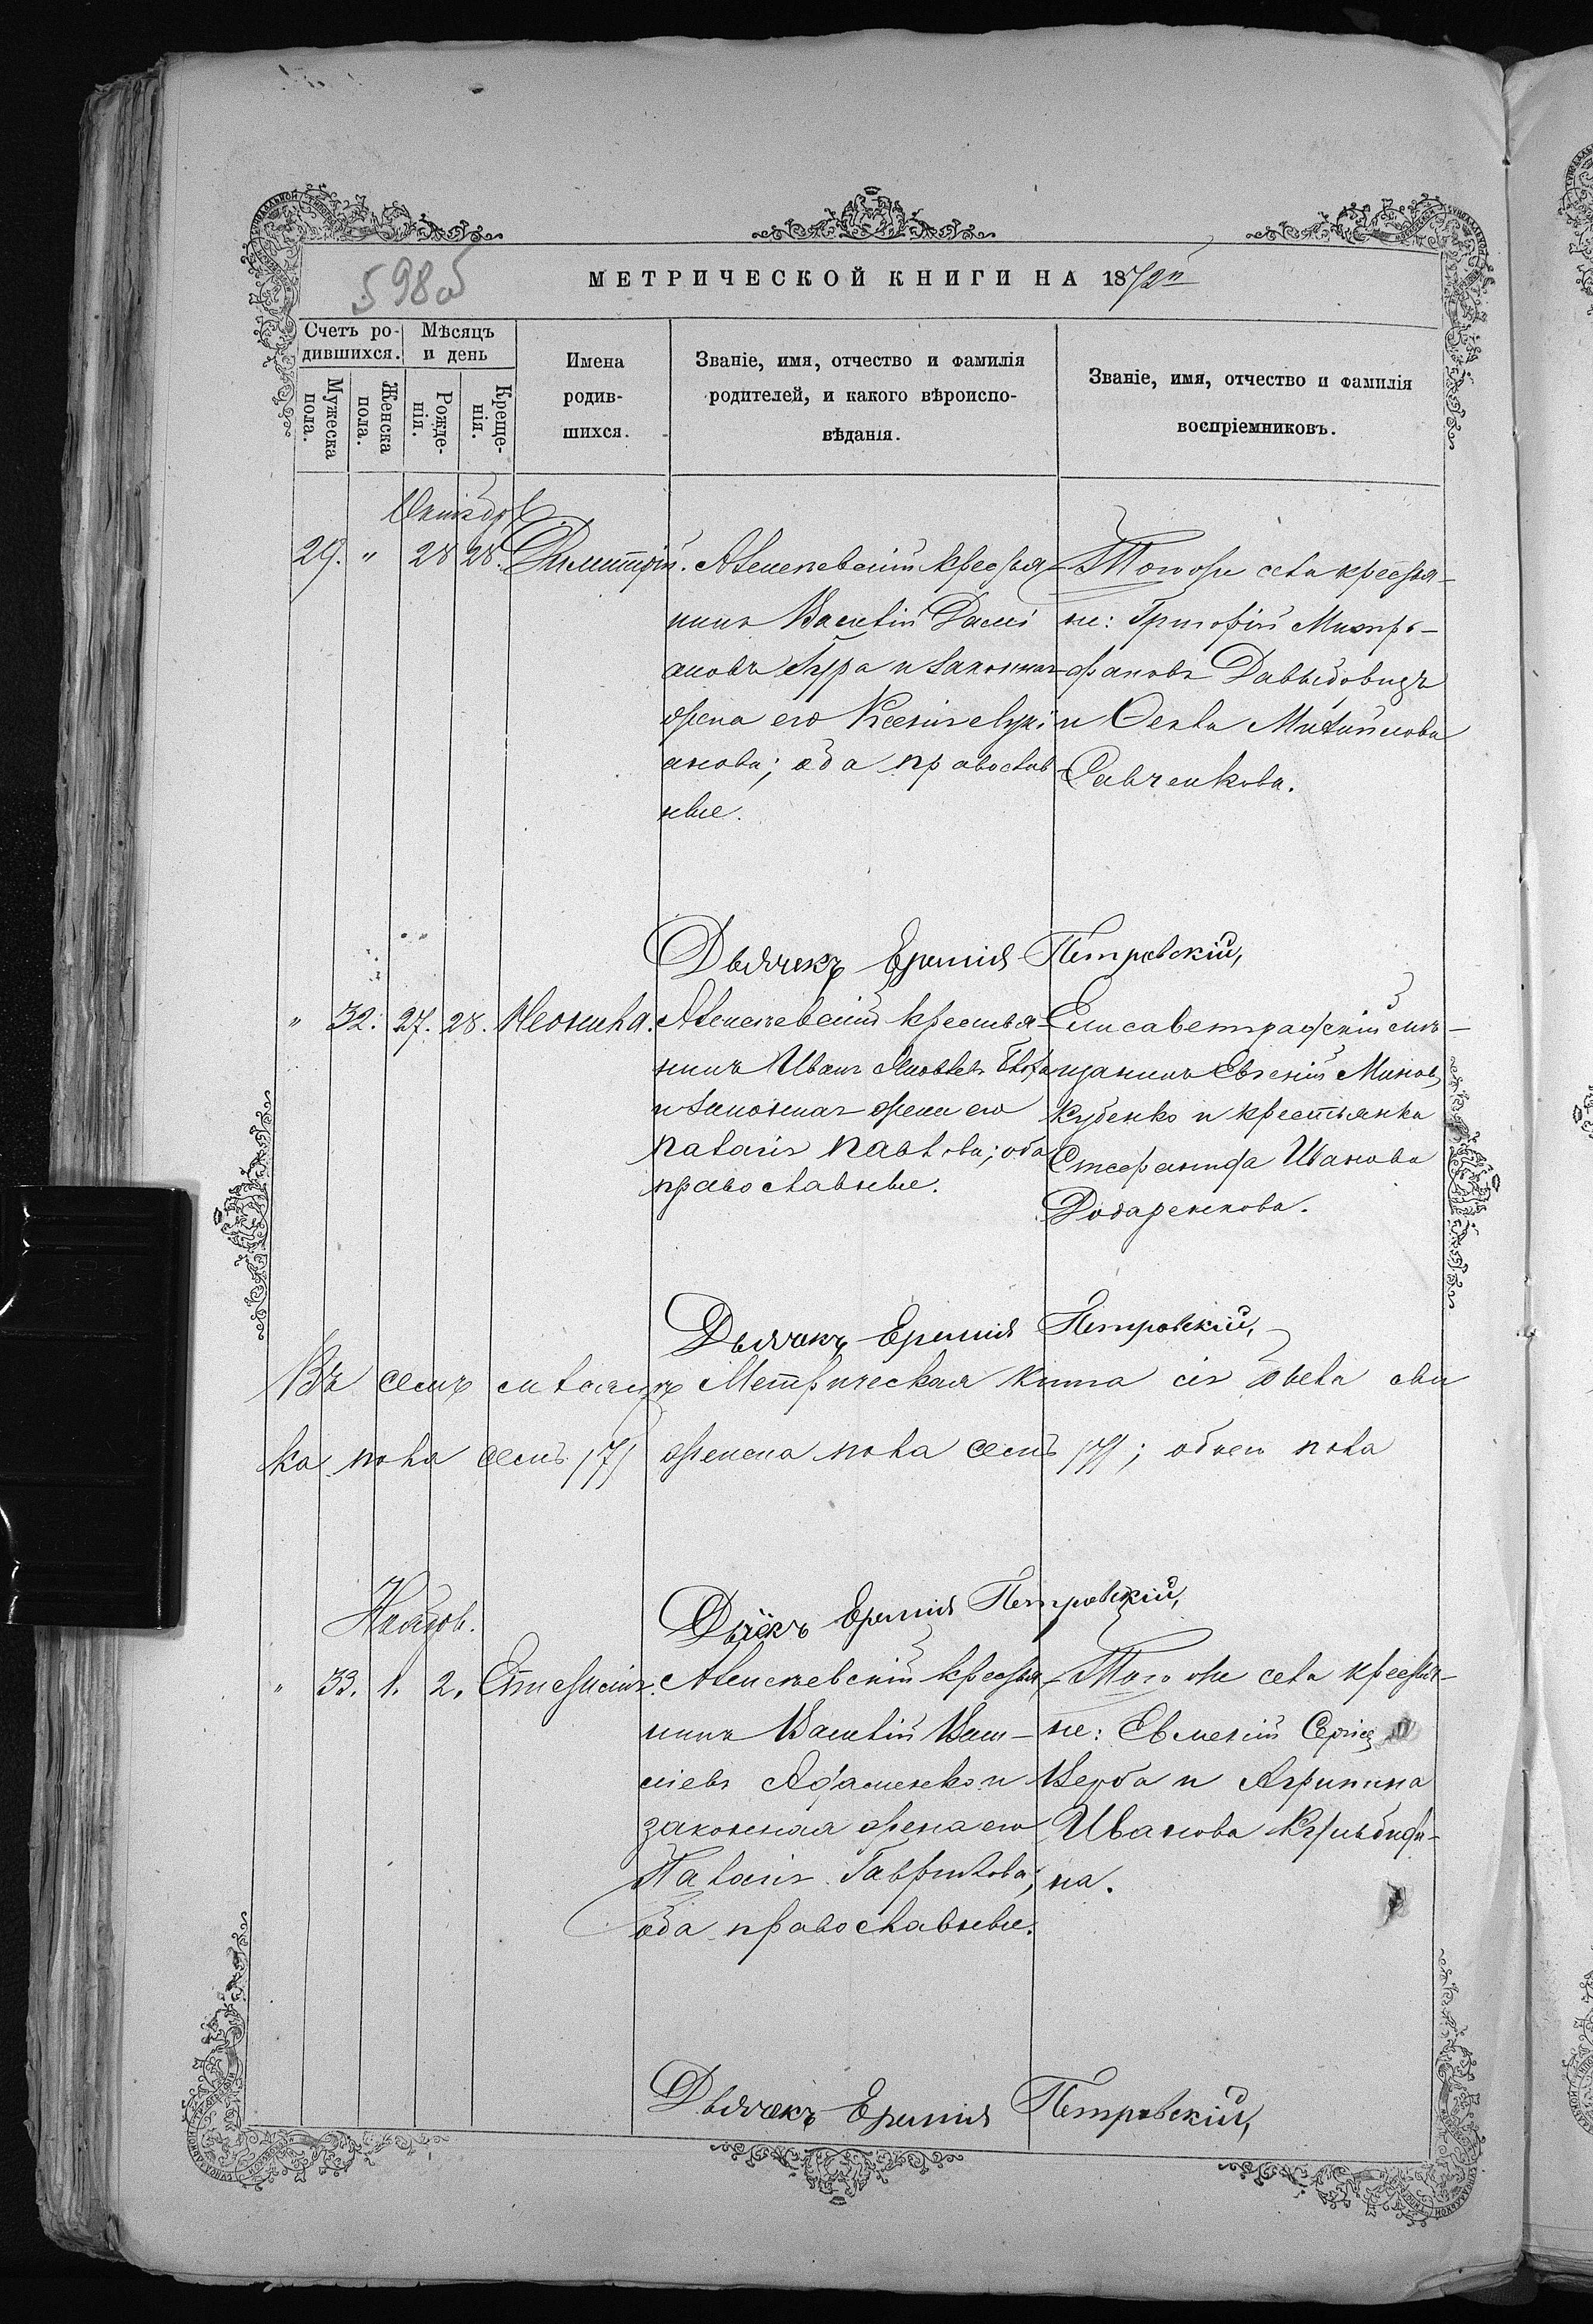 598об
МЕТРИЧЕСКОЙ КНИГИ НА 1872й
Счетъ ро-
дившихся.
Мѣсяцъ
и день
Мужеска
пола.
Женска
пола.
Рожде-
нія.
Креще-
нія.
Имена
родив-
шихся.
Званіе, имя, отчество и фамилія
родителей, и какого вѣроиспо-
вѣданія.
Званіе, имя, отчество и фамилія
воспріемниковъ.
Октябрь
29. " 28 28. Димитрій. Алексѣевскій крестья-
нинъ Василій Дамі
ановъ Гура и законная
жена его Ксенія
анова; оба православ
ные.
Того же села крестья-
не: Григорій Митро-
фановъ Давыдовичъ
и Ѳекла Михайлова
Савченкова.
Дьячекъ Еремія Петровскій,
" 32. 27. 28. Неонила. Алексѣевскій крестья-
нинъ Иванъ Яковлевъ
и законная жена его
Палагія Павлова; оба
православные.
Елисаветградскій мѣ-
щанинъ Евгеній Миновъ
Куценко и крестьянка
Стефанида Иванова
Бодаренкова.
Дьячекъ Еремія Петровскій,
Въ семъ мѣсяцѣ Метрическая книга сія была сви
ка пола семь /7/ женска пола семь /7/; обоего пола
Дьячекъ Еремія Петровскій,
Ноябрь.
" 33. 1. 2. Алексѣевскій крестья-
нинъ Василій Васи-
ліевъ Адаменко и
законная жена его
Палагія Гаврилова;
оба православные.
Того же села крестья-
не: Евмений
Верба и Агрипина
Иванова
на.
Дьячекъ Еремія Петровскій,